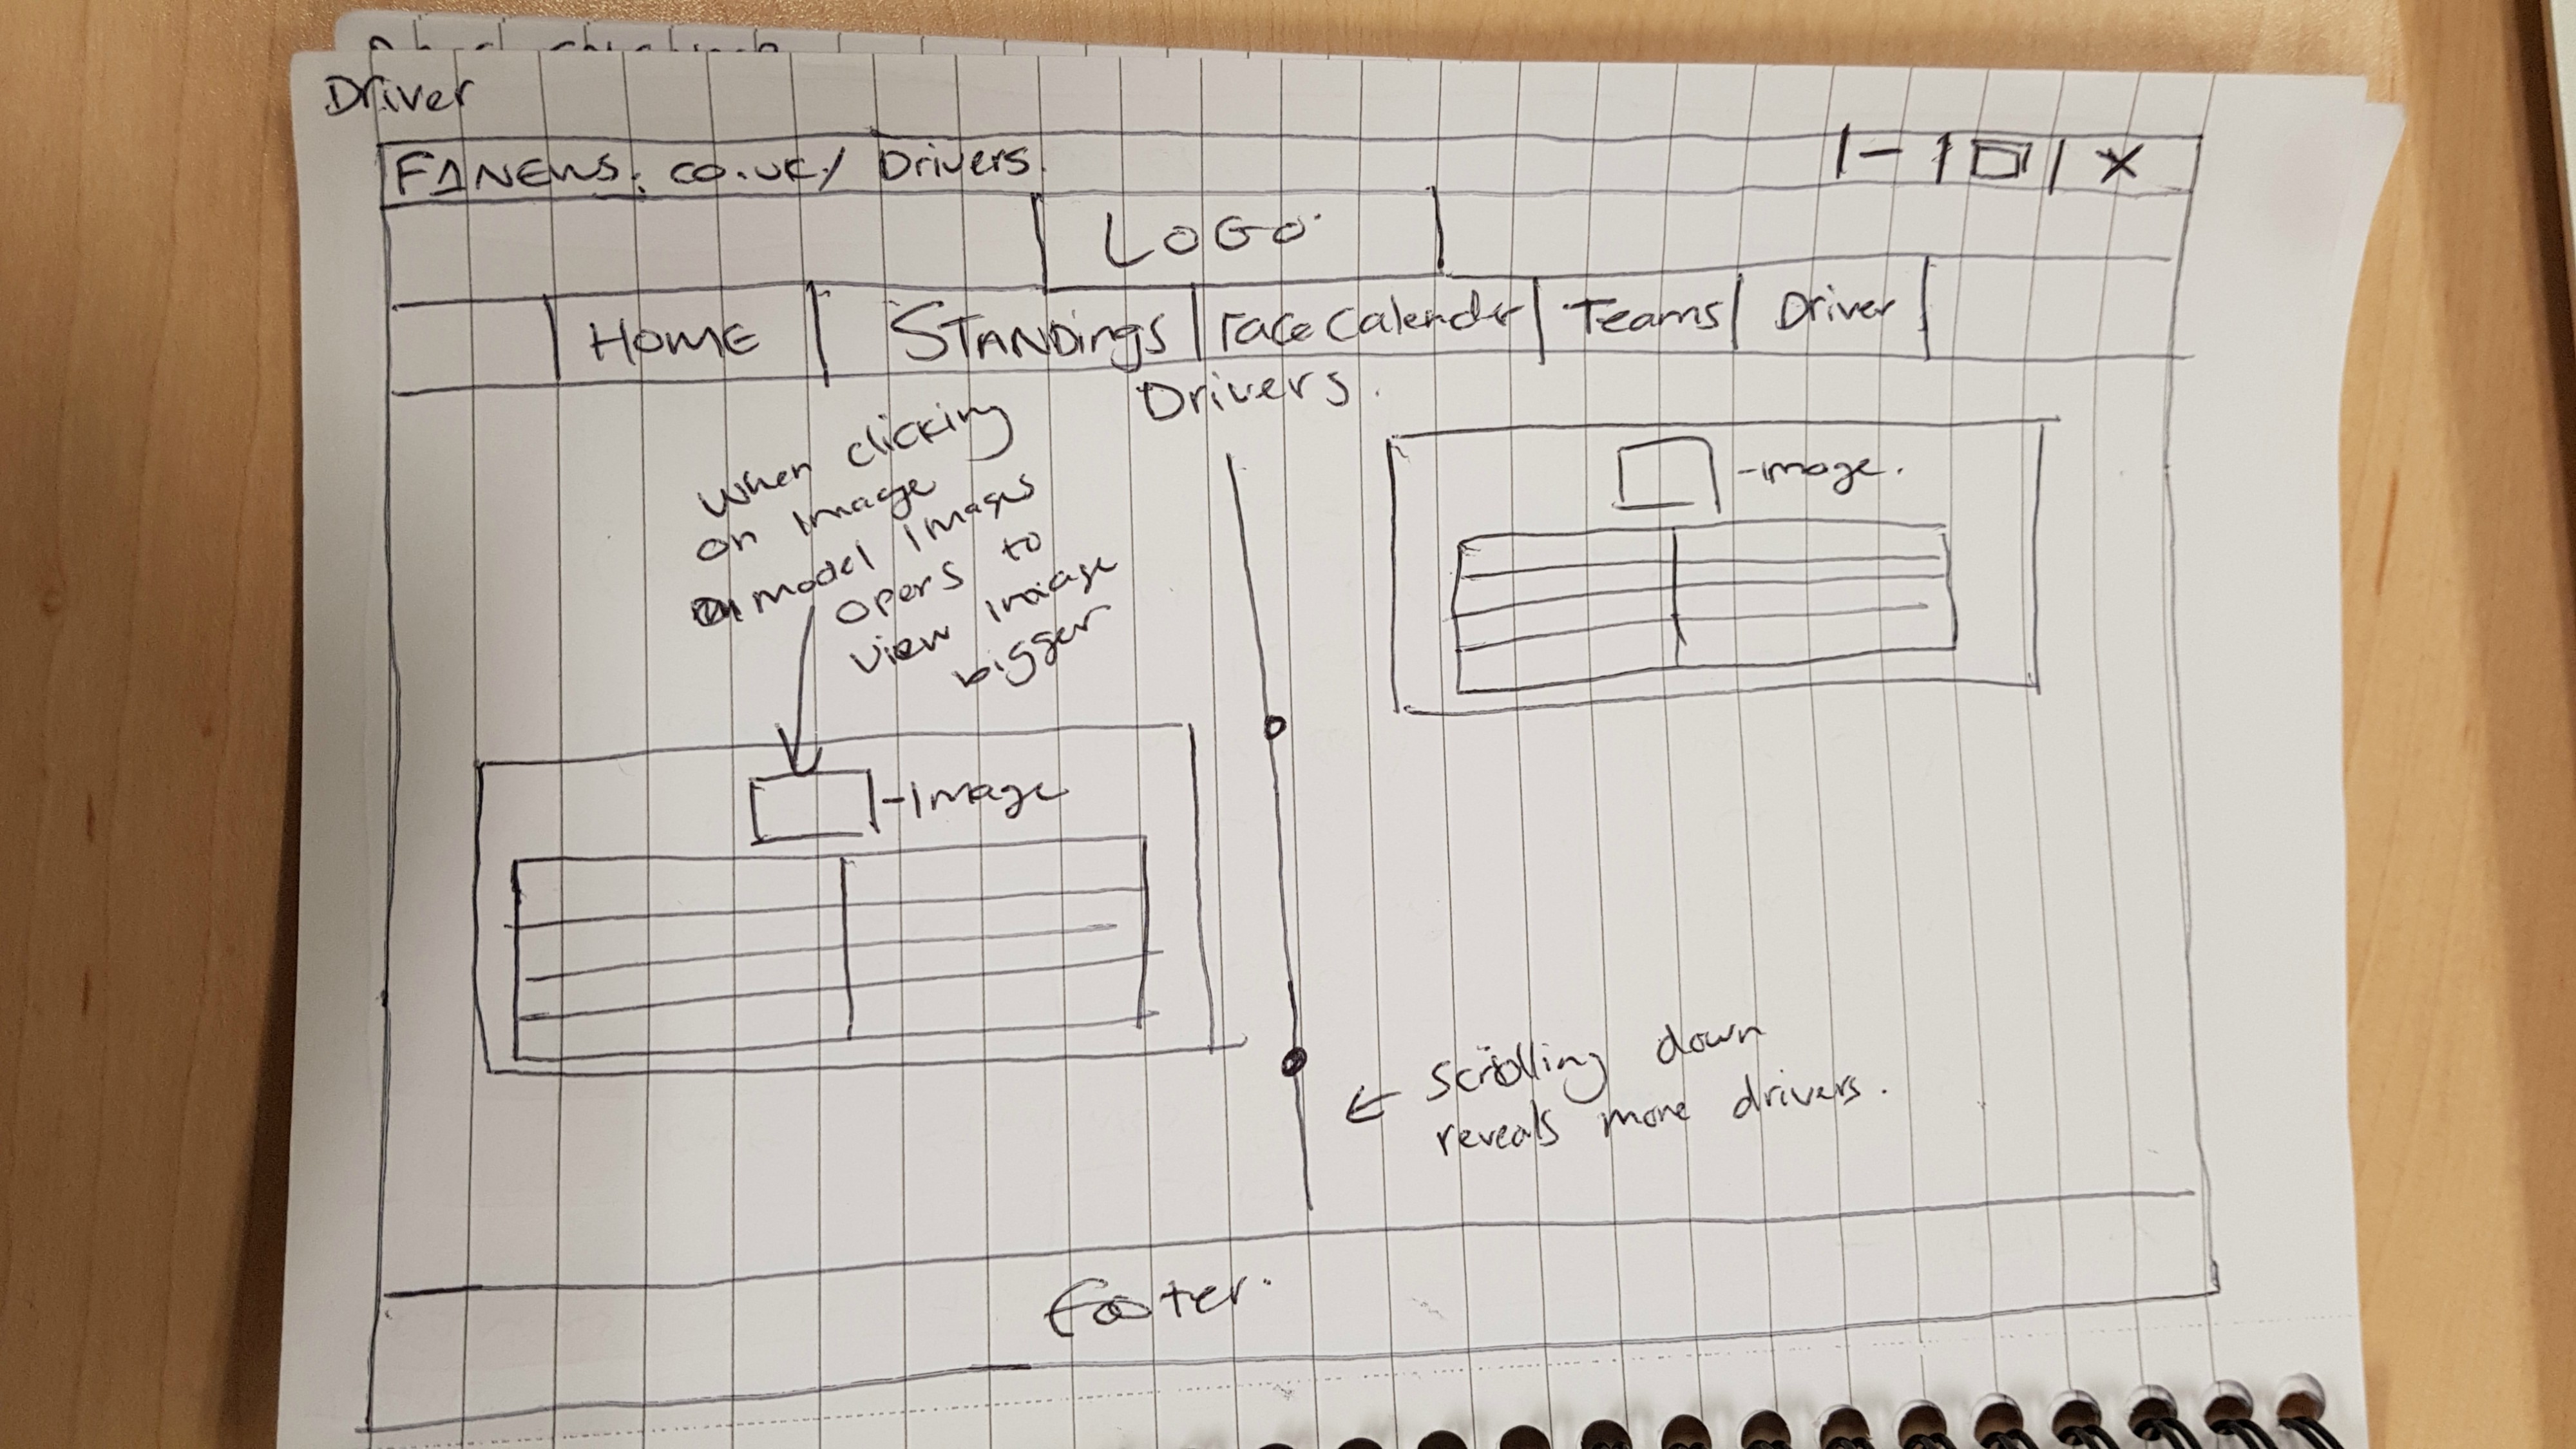 Driver
F1NEWS.co.uk/ Drivers.
LOGO
HOME
STANDings
race Calender
Teams
Driver
Drivers.
When clicking
on image
on model images
opens to
view image
bigger
-image.
-Image
← scrolling down
reveals more drivers.
footer.